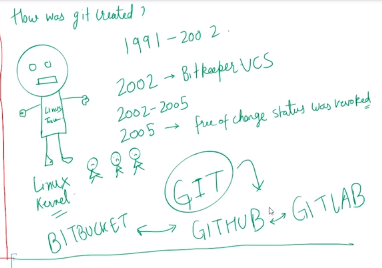 How was git created?
1991-2002.
2002 → Bitkeeper VCS
2002-2005
2005 → free of change status was revoked
Linux
Team
Linux
Kernel
GIT
BITBUCKET ↔ GITHUB ↔ GITLAB